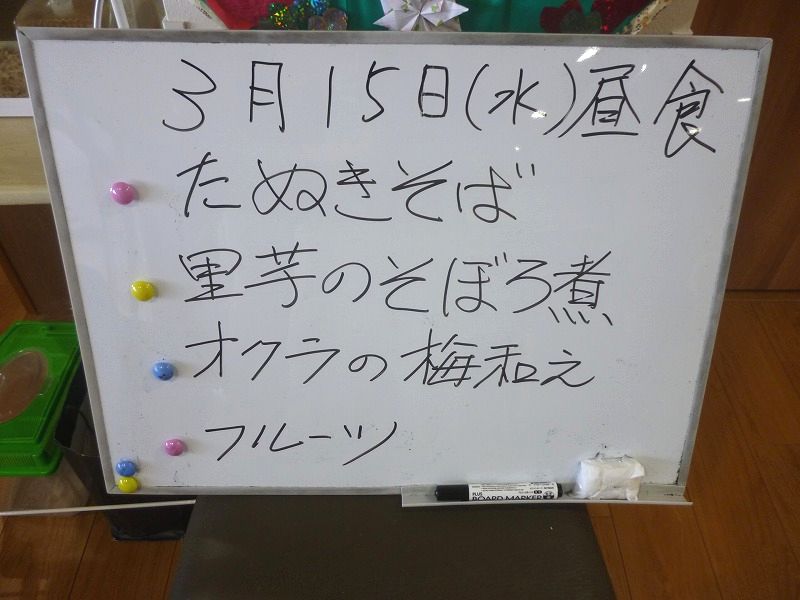 3月15日(水)昼食
たぬきそば
里芋のそぼろ煮
オクラの梅和え
フルーツ
PLUS
BOARD MARKER